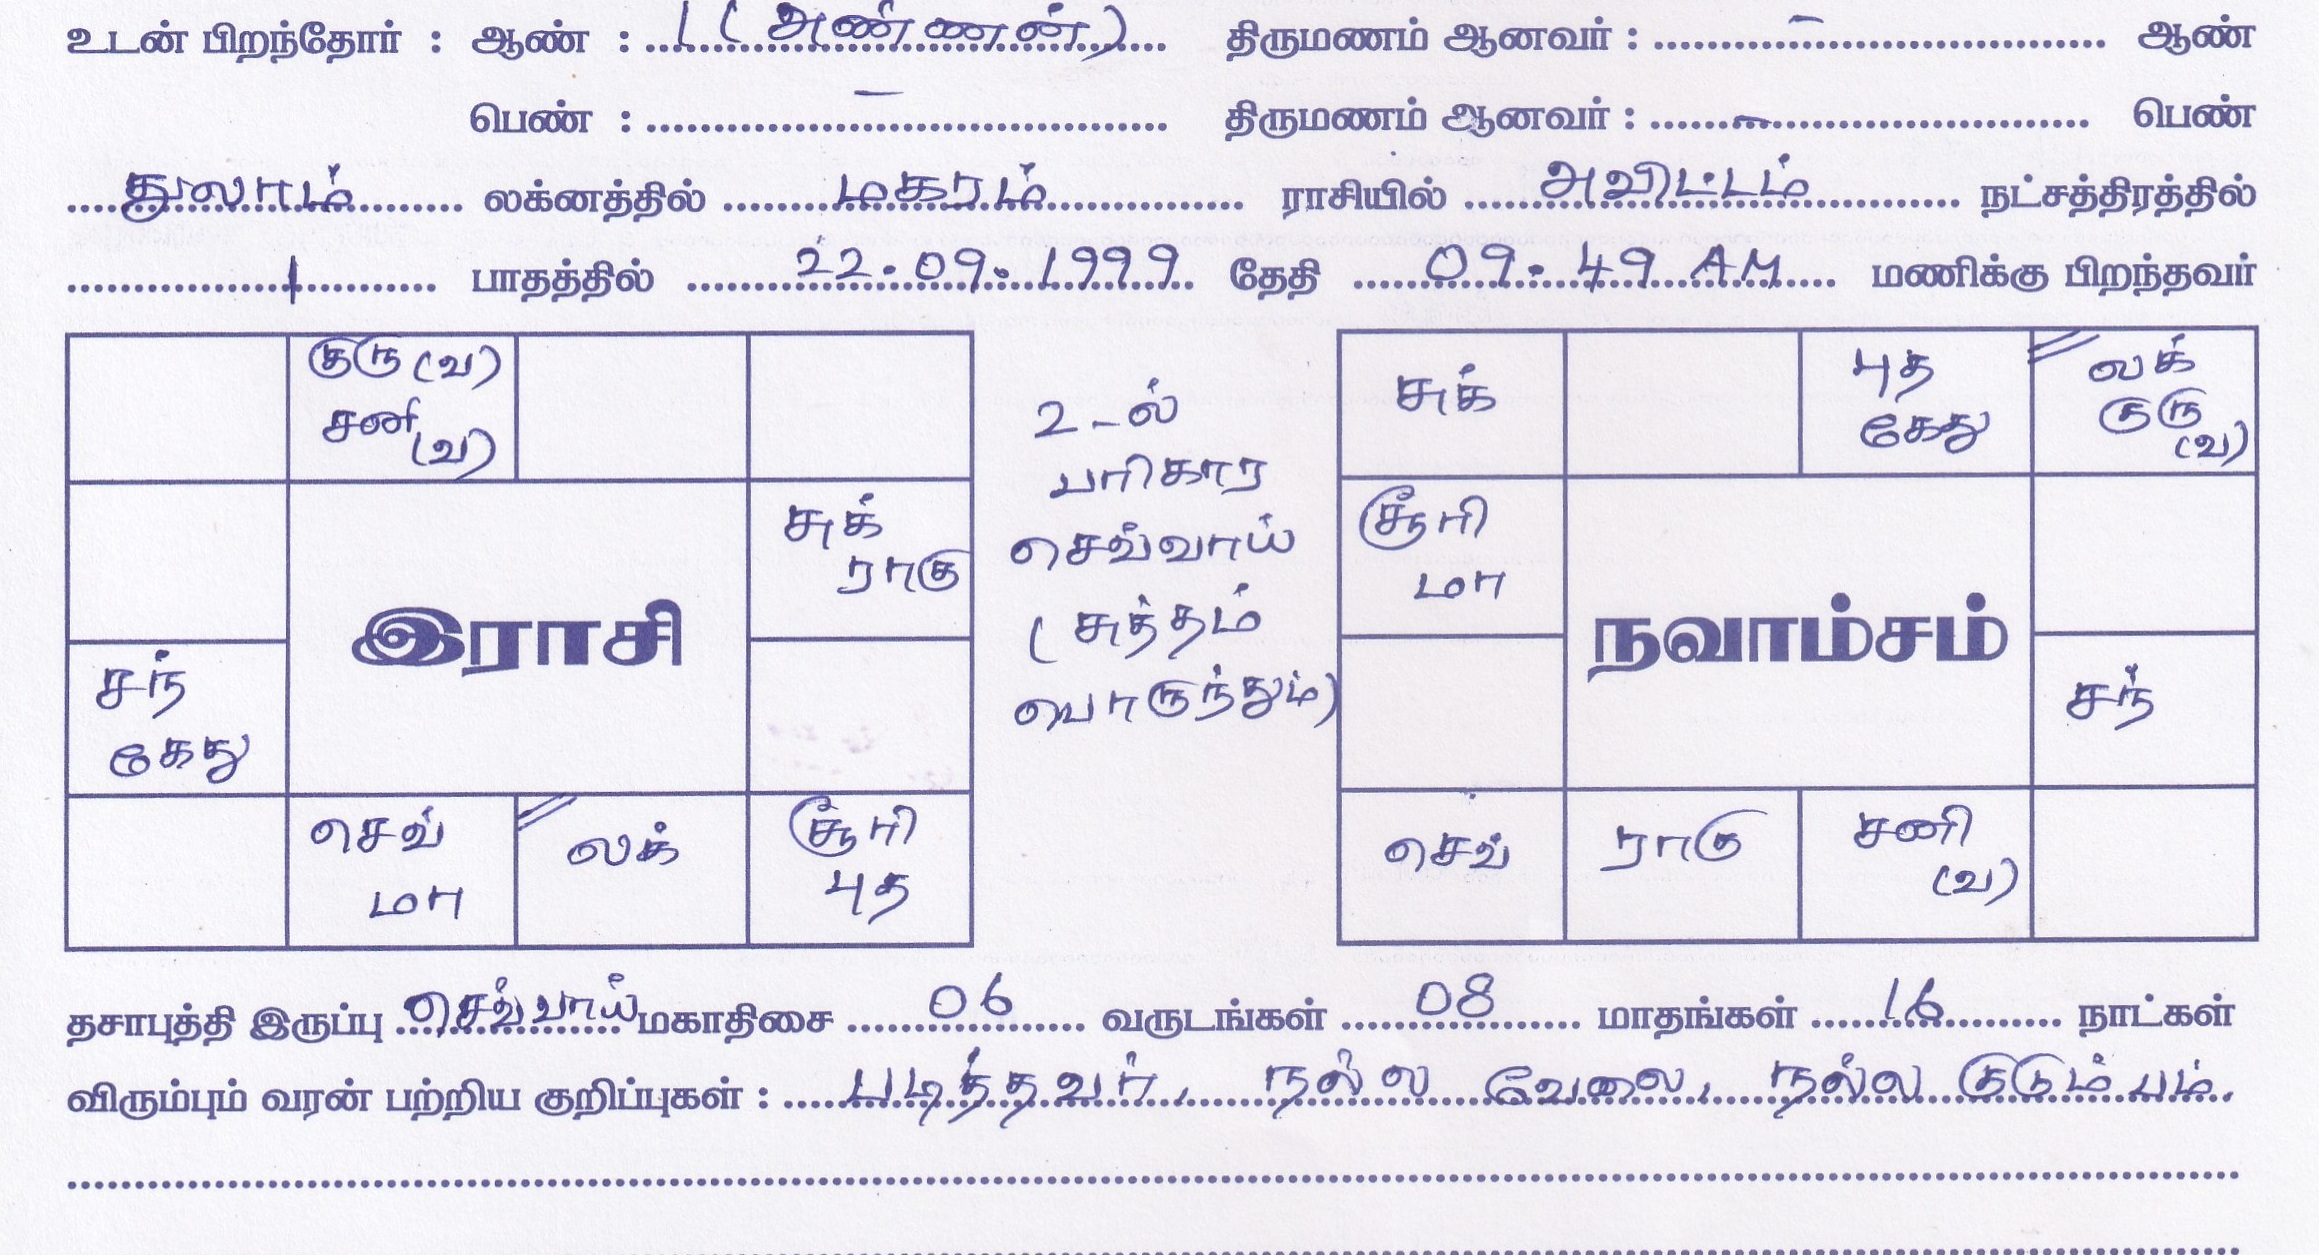 உடன் பிறந்தோர் : ஆண் : 1 (அண்ணன்) திருமணம் ஆனவர் : – ஆண்
பெண் : – திருமணம் ஆனவர் : – பெண்
துலாம் லக்னத்தில் மகரம் ராசியில் அவிட்டம் நட்சத்திரத்தில்
1 பாதத்தில் 22.09.1999 தேதி 09.49 AM மணிக்கு பிறந்தவர்
குரு (வ)
சனி (வ)
சுக்
ராகு
இராசி
சந்
கேது
செவ்
மா
லக்
சூரி
புத
2-ல்
பரிகார
செவ்வாய்
(சுத்தம்
பொருந்தும்)
சுக்
புத
கேது
லக்
குரு
(வ)
சூரி
மா
நவாம்சம்
சந்
செவ்
ராகு
சனி
(வ)
தசாபுத்தி இருப்பு செவ்வாய் மகாதிசை 06 வருடங்கள் 08 மாதங்கள் 16 நாட்கள்
விரும்பும் வரன் பற்றிய குறிப்புகள் : படித்தவர், நல்ல வேலை, நல்ல குடும்பம்.